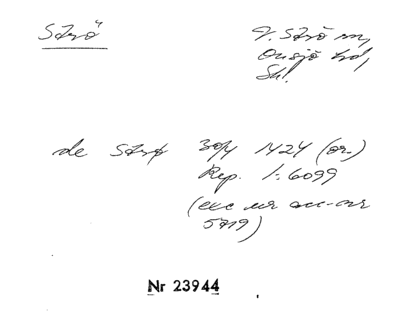 Strö
V. Strö sn,
Onsjö hd,
Sk.
de Strø 30/4 1424 (or.)
Rep. 1:6099
(exc ur acc-nr
5719)
Nr 23944